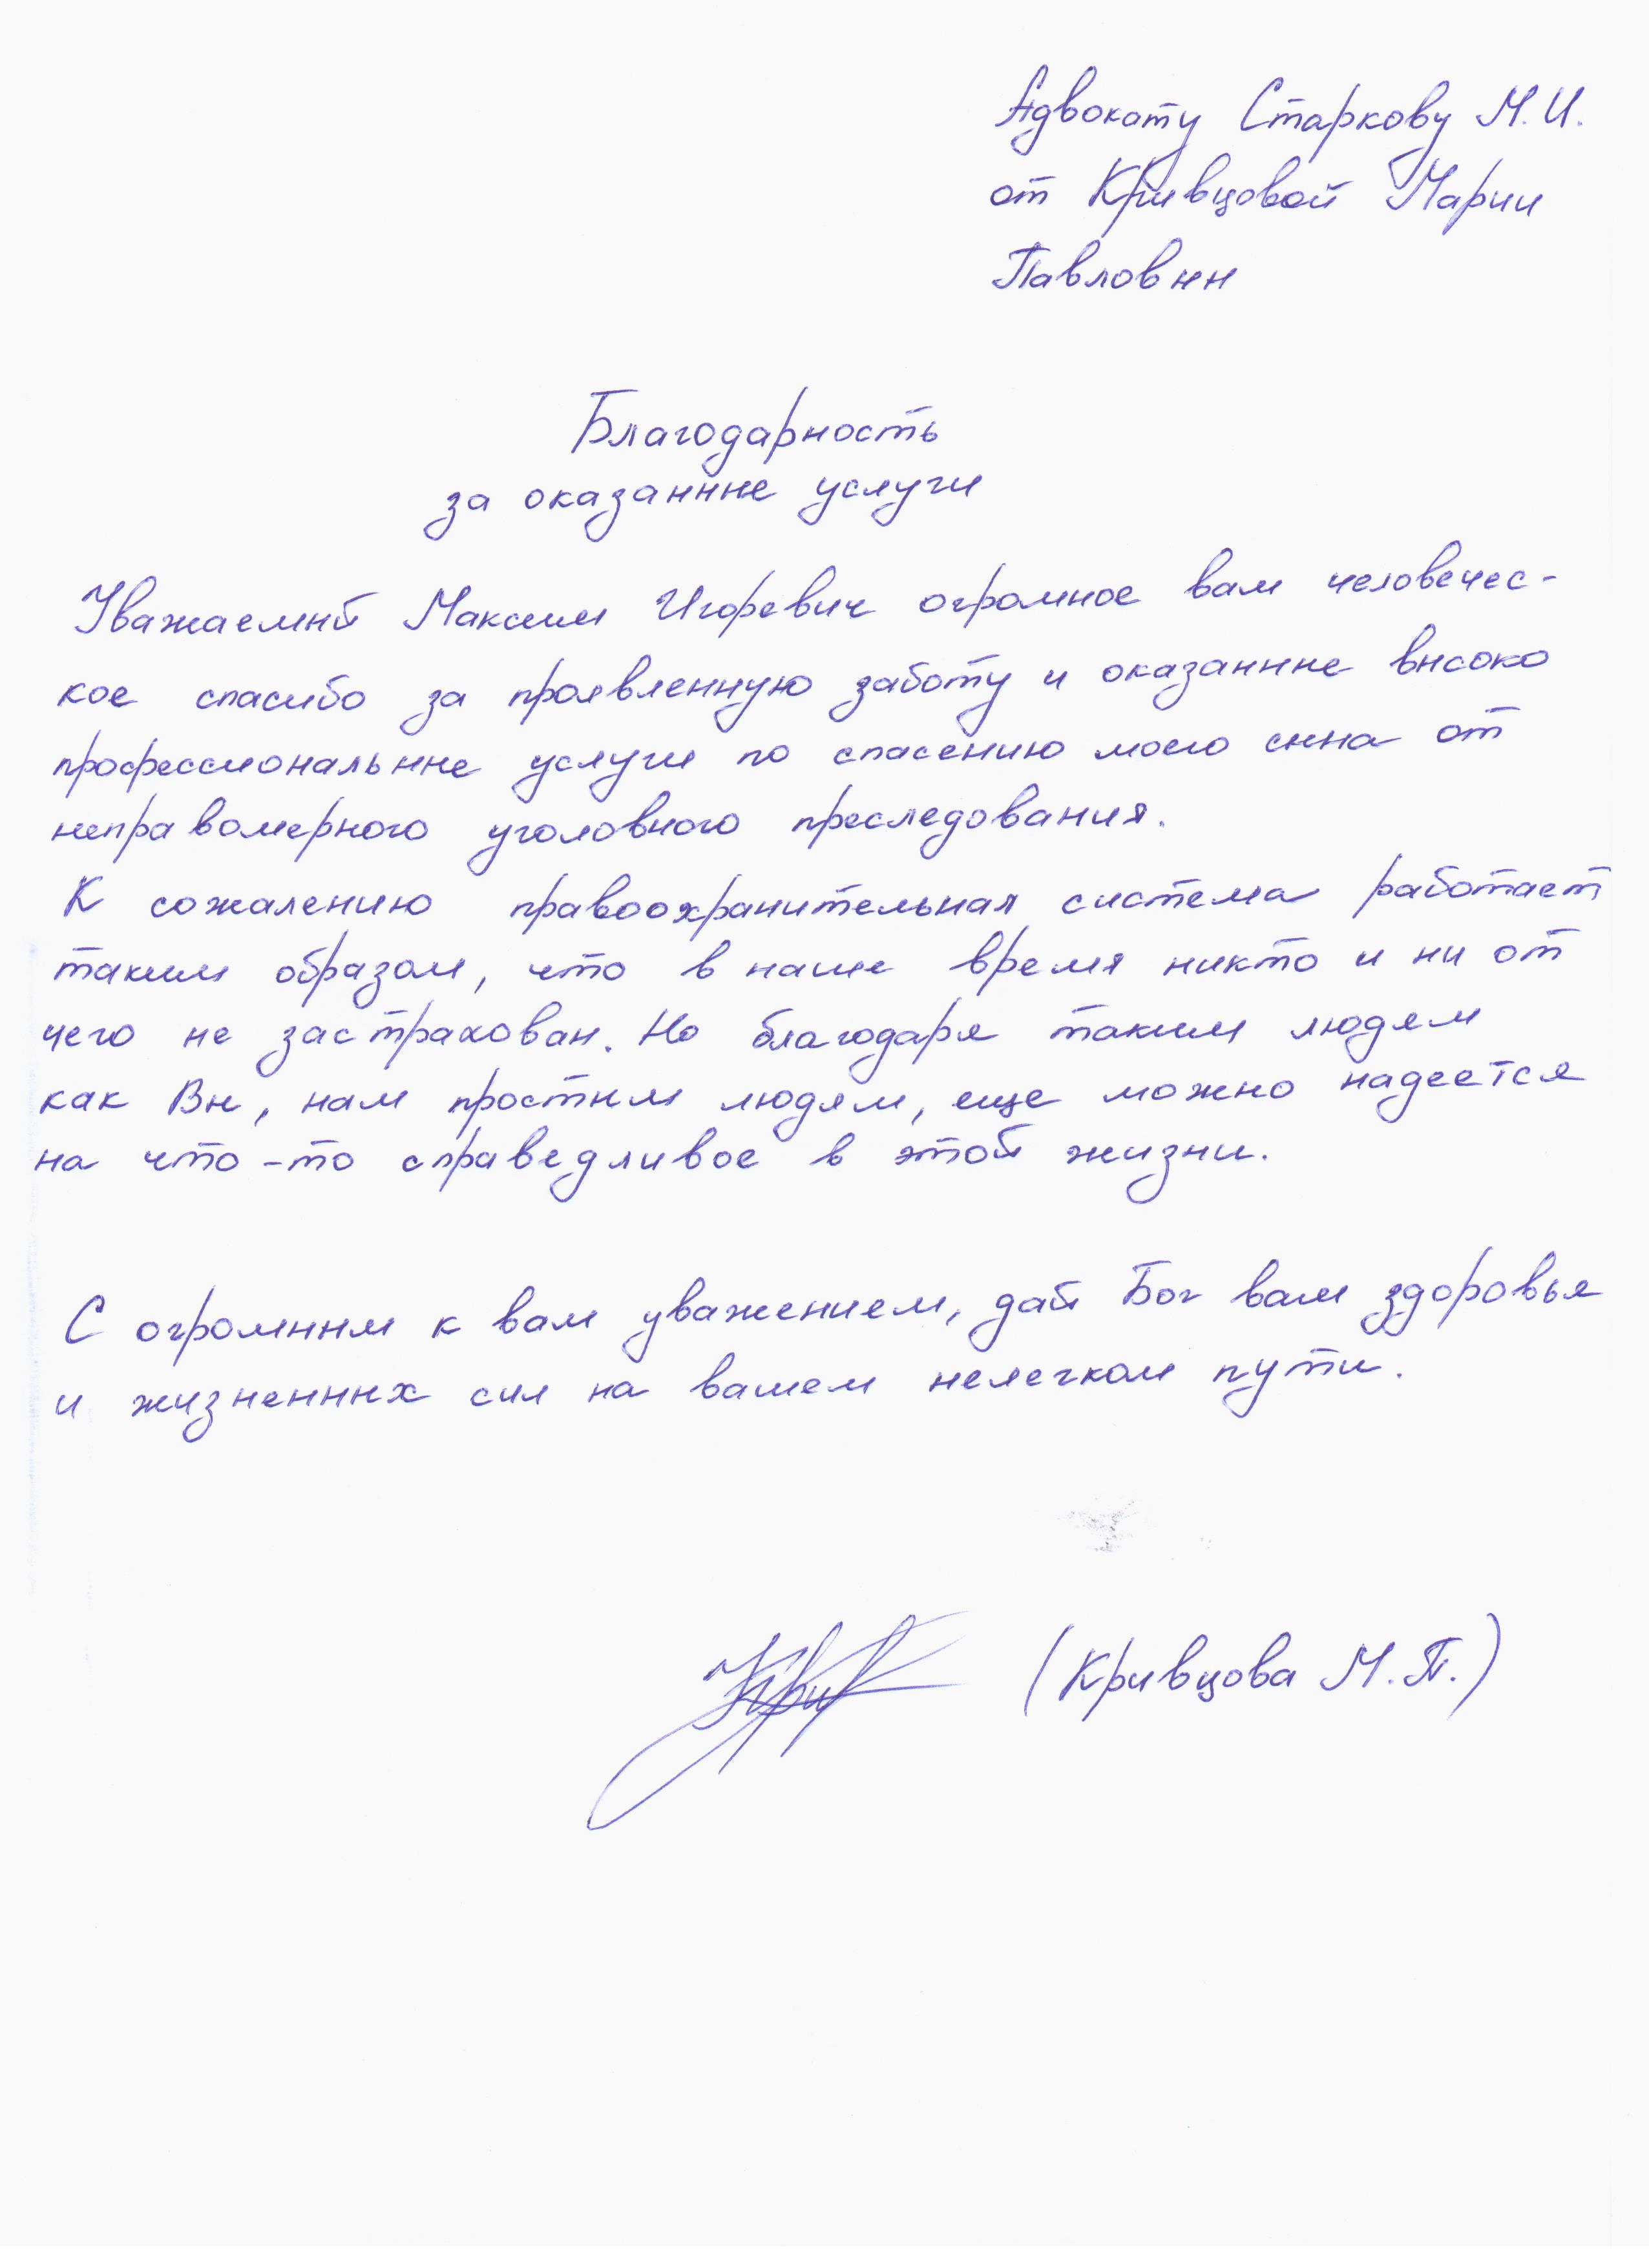 Адвокату Старкову М.И.
от Кривцовой Марии
Павловны
Благодарность
за оказанные услуги
Уважаемый Максим Игоревич огромное вам человечес-
кое спасибо за проявленную заботу и оказанные высоко
профессиональные услуги по спасению моего сына от
неправомерного уголовного преследования.
К сожалению правоохранительная система работает
таким образом, что в наше время никто и ни от
чего не застрахован. Но благодаря таким людям
как Вы, нам простым людям, еще можно надеется
на что-то справедливое в этой жизни.
С огромным к вам уважением, дай Бог вам здоровья
и жизненных сил на вашем нелегком пути.
(Кривцова М.П.)